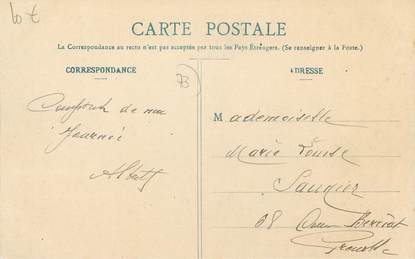 CARTE POSTALE
La Correspondance au recto n'est pas acceptée par tous les Pays Étrangers. (Se renseigner à la Poste.)
CORRESPONDANCE
ADRESSE
73
de ma
Journée
Albert
Mademoiselle
Marie Louise
Saugier
68 Cours Berriat
Grenoble